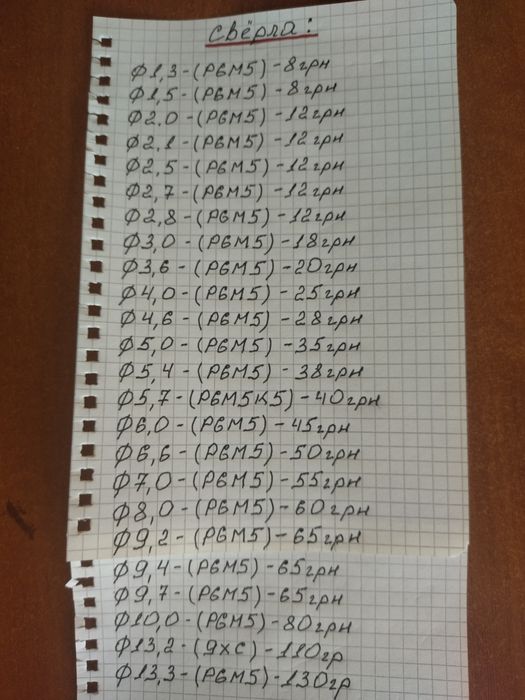 Свёрла:
Ф1,3-(Р6М5)-8грн
Ф1,5-(Р6М5)-8грн
Ф2.0-(Р6М5)-12грн
Ф2,1-(Р6М5)-12грн
Ф2,5-(Р6М5)-12грн
Ф2,7-(Р6М5)-12грн
Ф2,8-(Р6М5)-12грн
Ф3,0-(Р6М5)-18грн
Ф3,6-(Р6М5)-20грн
Ф4,0-(Р6М5)-25грн
Ф4,6-(Р6М5)-28грн
Ф5,0-(Р6М5)-35грн
Ф5,4-(Р6М5)-38грн
Ф5,7-(Р6М5К5)-40грн
Ф6,0-(Р6М5)-45грн
Ф6,6-(Р6М5)-50грн
Ф7,0-(Р6М5)-55грн
Ф8,0-(Р6М5)-60грн
Ф9,2-(Р6М5)-65грн
Ф9,4-(Р6М5)-65грн
Ф9,7-(Р6М5)-65грн
Ф10,0-(Р6М5)-80грн
Ф13,2-(9хс)-110гр
Ф13,3-(Р6М5)-130гр